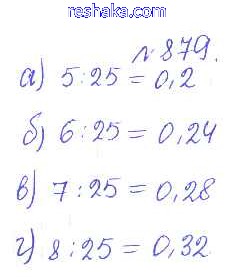 reshaka.com
№879.
а) 5:25 = 0,2
б) 6:25 = 0,24
в) 7:25 = 0,28
г) 8:25 = 0,32